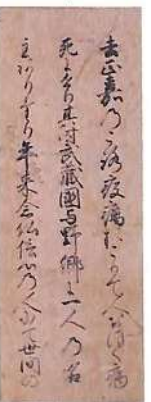 去正嘉のころ疫癘おこりて人おほく病
死しけり其時武蔵國与野郷に一人の名
主ありけり年来念仏信心の人にて世間の